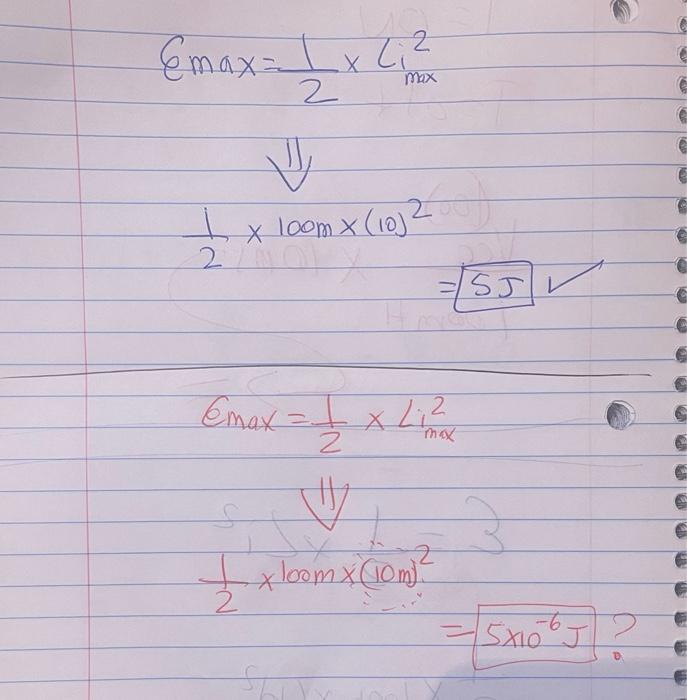 Emax = 1/2 × Li²max
⇓
1/2 × 100m × (10)²
= 5J ✓
Emax = 1/2 × Li²max
⇓
1/2 × 100m × (10m)²
= 5×10⁻⁶ J ?